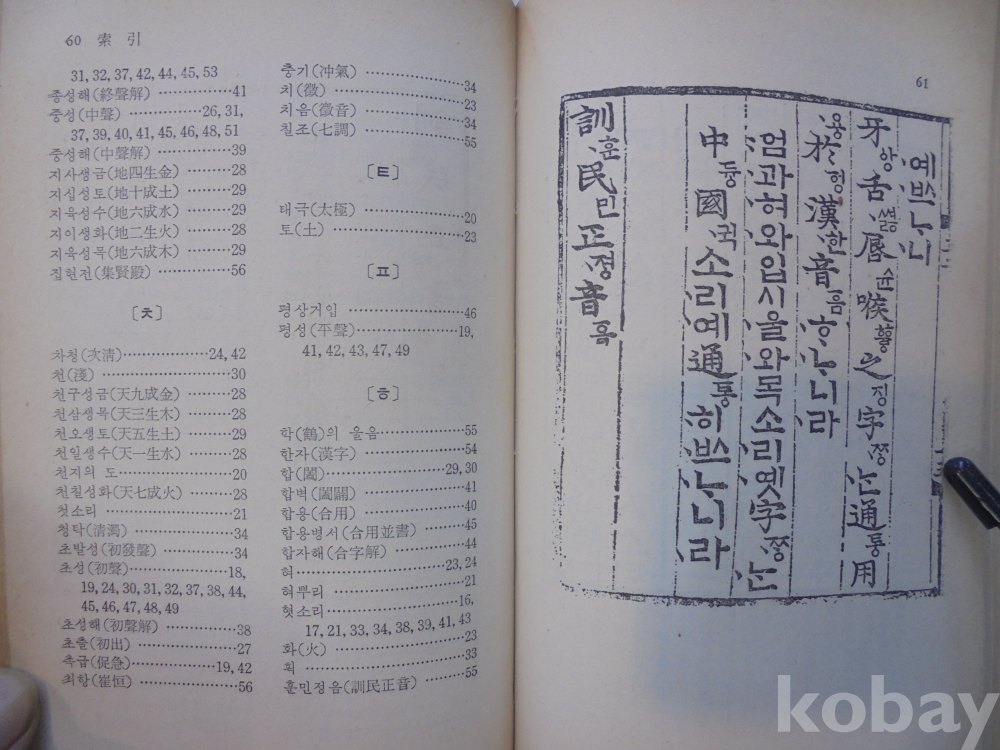 60 索 引
31, 32, 37, 42, 44, 45, 53
종성해(終聲解)……………41
중성(中聲)……………26, 31,
37, 39, 40, 41, 45, 46, 48, 51
중성해(中聲解)……………39
지사생금(地四生金)……………28
지십성토(地十成土)……………29
지육성수(地六成水)……………29
지이생화(地二生火)……………28
지육성목(地六成木)……………29
집현전(集賢殿)……………56
〔ㅊ〕
차청(次淸)……………24, 42
천(淺)……………30
천구성금(天九成金)……………28
천삼생목(天三生木)……………28
천오생토(天五生土)……………29
천일생수(天一生水)……………28
천지의 도……………20
천칠성화(天七成火)……………28
첫소리……………21
청탁(淸濁)……………34
초발성(初發聲)……………34
초성(初聲)……………18,
19, 24, 30, 31, 32, 37, 38, 44,
45, 46, 47, 48, 49
초성해(初聲解)……………38
초출(初出)……………27
촉급(促急)……………19, 42
최항(崔恒)……………56
충기(冲氣)……………34
치(徵)……………23
치음(徵音)……………34
칠조(七調)……………55
〔ㅌ〕
태극(太極)……………20
토(土)……………23
〔ㅍ〕
평상거입……………46
평성(平聲)……………19,
41, 42, 43, 47, 49
〔ㅎ〕
학(鶴)의 울음……………55
한자(漢字)……………54
합(闔)……………29, 30
합벽(闔闢)……………41
합용(合用)……………40
합용병서(合用並書)……………45
합자해(合字解)……………44
혀……………23, 24
혀뿌리……………21
혓소리……………16,
17, 21, 33, 34, 38, 39, 41, 43
화(火)……………23
획……………33
훈민정음(訓民正音)……………55
61
예ᄡᅳᄂᆞ니
牙ᅌᅡᆼ舌쎠ᇙ脣쓘喉ᅘᅮᇢ之징字ᄍᆞᆼᄂᆞᆫ通토ᇰ用
요ᇰ於ᅙᅥᆼ漢한音ᅙᅳᆷᄒᆞᄂᆞ니라
엄과혀와입시울와목소리옛字ᄍᆞᆼᄂᆞᆫ
中듀ᇰ國귁소리예通토ᇰ히ᄡᅳᄂᆞ니라
訓훈民민正져ᇰ音ᅙᅳᆷ
kobay